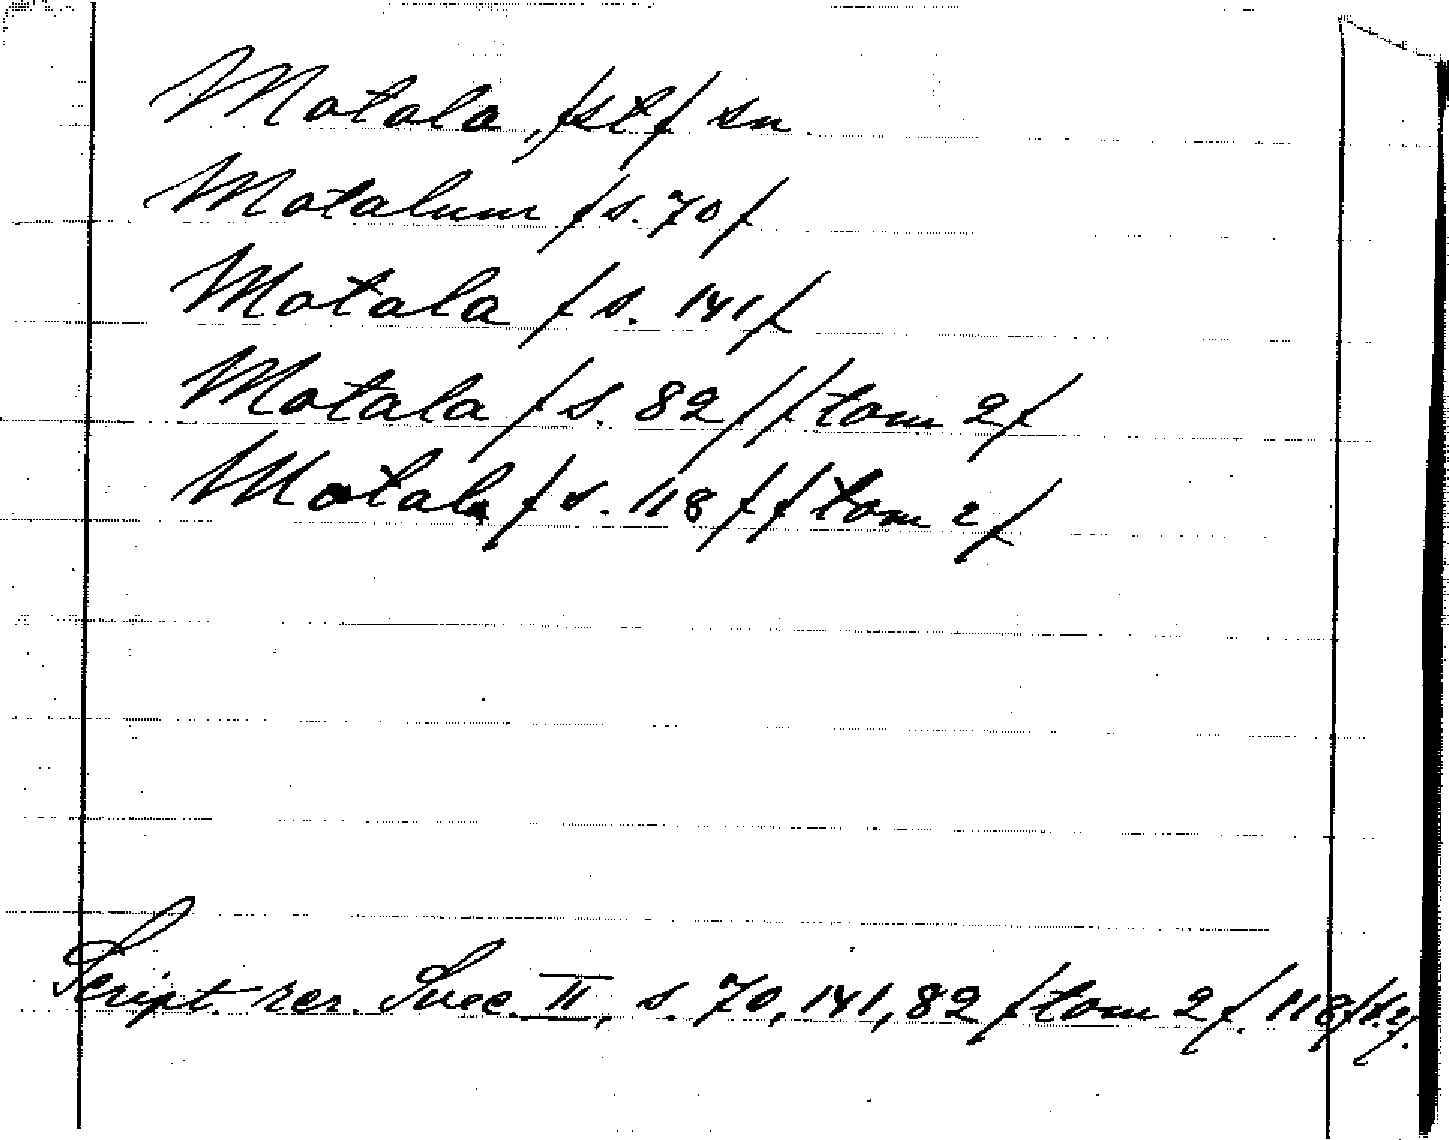 Motala, /st/ sn
Motalum /s. 70/
Motala /s. 141/
Motala /s. 82/ /tom 2/
Motala /s. 118/ /tom 2/
Script. rer. Svec. II, s. 70, 141, 82 /tom 2/. 118/t.2/.